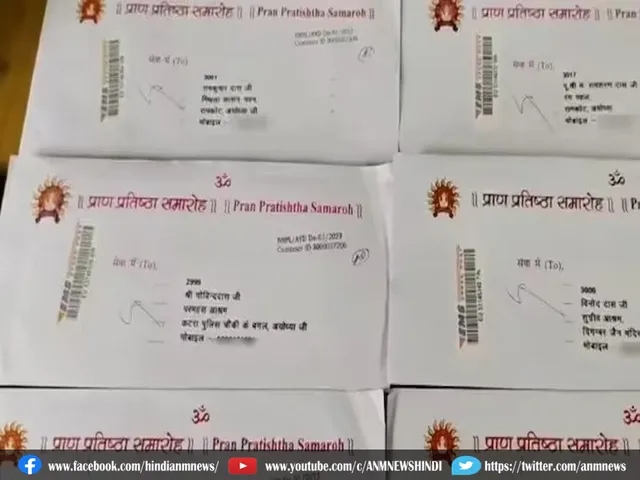 || प्राण प्रतिष्ठा समारोह || || Pran Pratishtha Samaroh ||
सेवा में (To)
3001
रामकुमार दास जी
रामकोट, अयोध्या जी
मोबाइल
|| प्राण प्रतिष्ठा समारोह || || Pran
सेवा में (To),
3017
रामकोट, अयोध्या
मोबाइल
ॐ
|| प्राण प्रतिष्ठा समारोह || || Pran Pratishtha Samaroh ||
Customer ID
सेवा में (To),
2999
श्री गोविन्ददास जी
परमहंस आश्रम
कटरा पुलिस चौकी के बगल, अयोध्या जी
मोबाइल
|| प्राण प्रतिष्ठा समारोह ||
सेवा में (To),
विनोद दास जी
आश्रम,
दिगम्बर जैन मंदिर
मोबाइल
ॐ
|| प्राण प्रतिष्ठा समारोह || || Pran Pratishtha Samaroh ||
ॐ
|| प्राण प्रतिष्ठा समारोह ||
www.facebook.com/hindianmnews/
www.youtube.com/c/ANMNEWSHINDI
https://twitter.com/anmnews